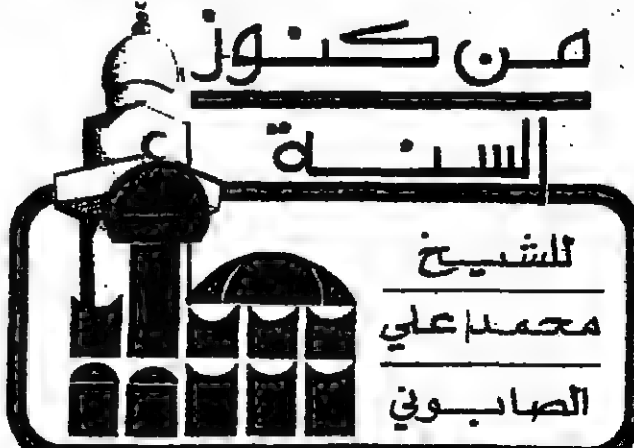 من كنوز
السنة
للشيخ
محمد علي
الصابوني